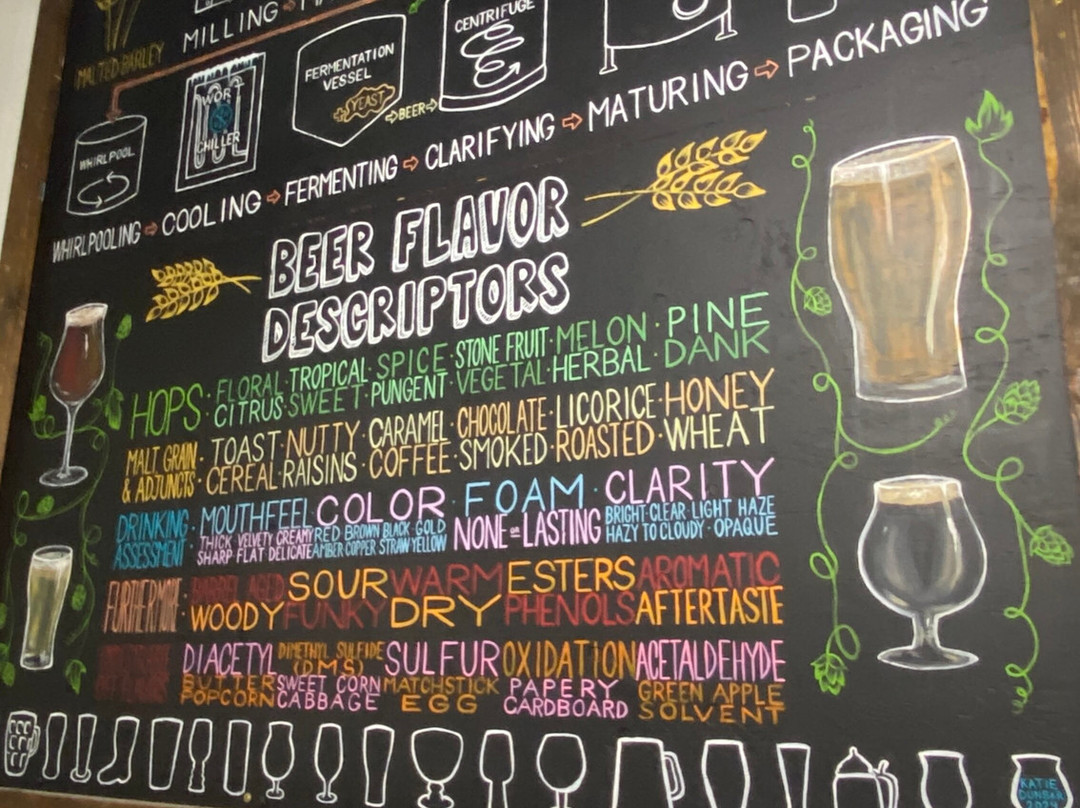 MALTED BARLEY
MILLING
CENTRIFUGE
FERMENTATION
VESSEL
YEAST
BEER
WORT
CHILLER
WHIRLPOOL
WHIRLPOOLING → COOLING → FERMENTING → CLARIFYING → MATURING → PACKAGING
BEER FLAVOR
DESCRIPTORS
HOPS · FLORAL · TROPICAL · SPICE · STONE FRUIT · MELON · PINE
CITRUS · SWEET · PUNGENT · VEGETAL · HERBAL · DANK
MALT GRAIN
& ADJUNCTS · TOAST · NUTTY · CARAMEL · CHOCOLATE · LICORICE · HONEY
CEREAL · RAISINS · COFFEE · SMOKED · ROASTED · WHEAT
DRINKING
ASSESSMENT · MOUTHFEEL · COLOR · FOAM · CLARITY
THICK VELVETY CREAMY RED BROWN BLACK GOLD NONE or LASTING BRIGHT · CLEAR LIGHT HAZE
SHARP FLAT DELICATE AMBER COPPER STRAW YELLOW HAZY TO CLOUDY · OPAQUE
FURTHERMORE: BARREL AGED SOUR WARM ESTERS AROMATIC
WOODY FUNKY DRY PHENOLS AFTERTASTE
DIACETYL DIMETHYL SULFIDE (DMS) SULFUR OXIDATION ACETALDEHYDE
BUTTER SWEET CORN MATCHSTICK PAPERY GREEN APPLE
POPCORN CABBAGE EGG CARDBOARD SOLVENT
KATIE
DUNBAR